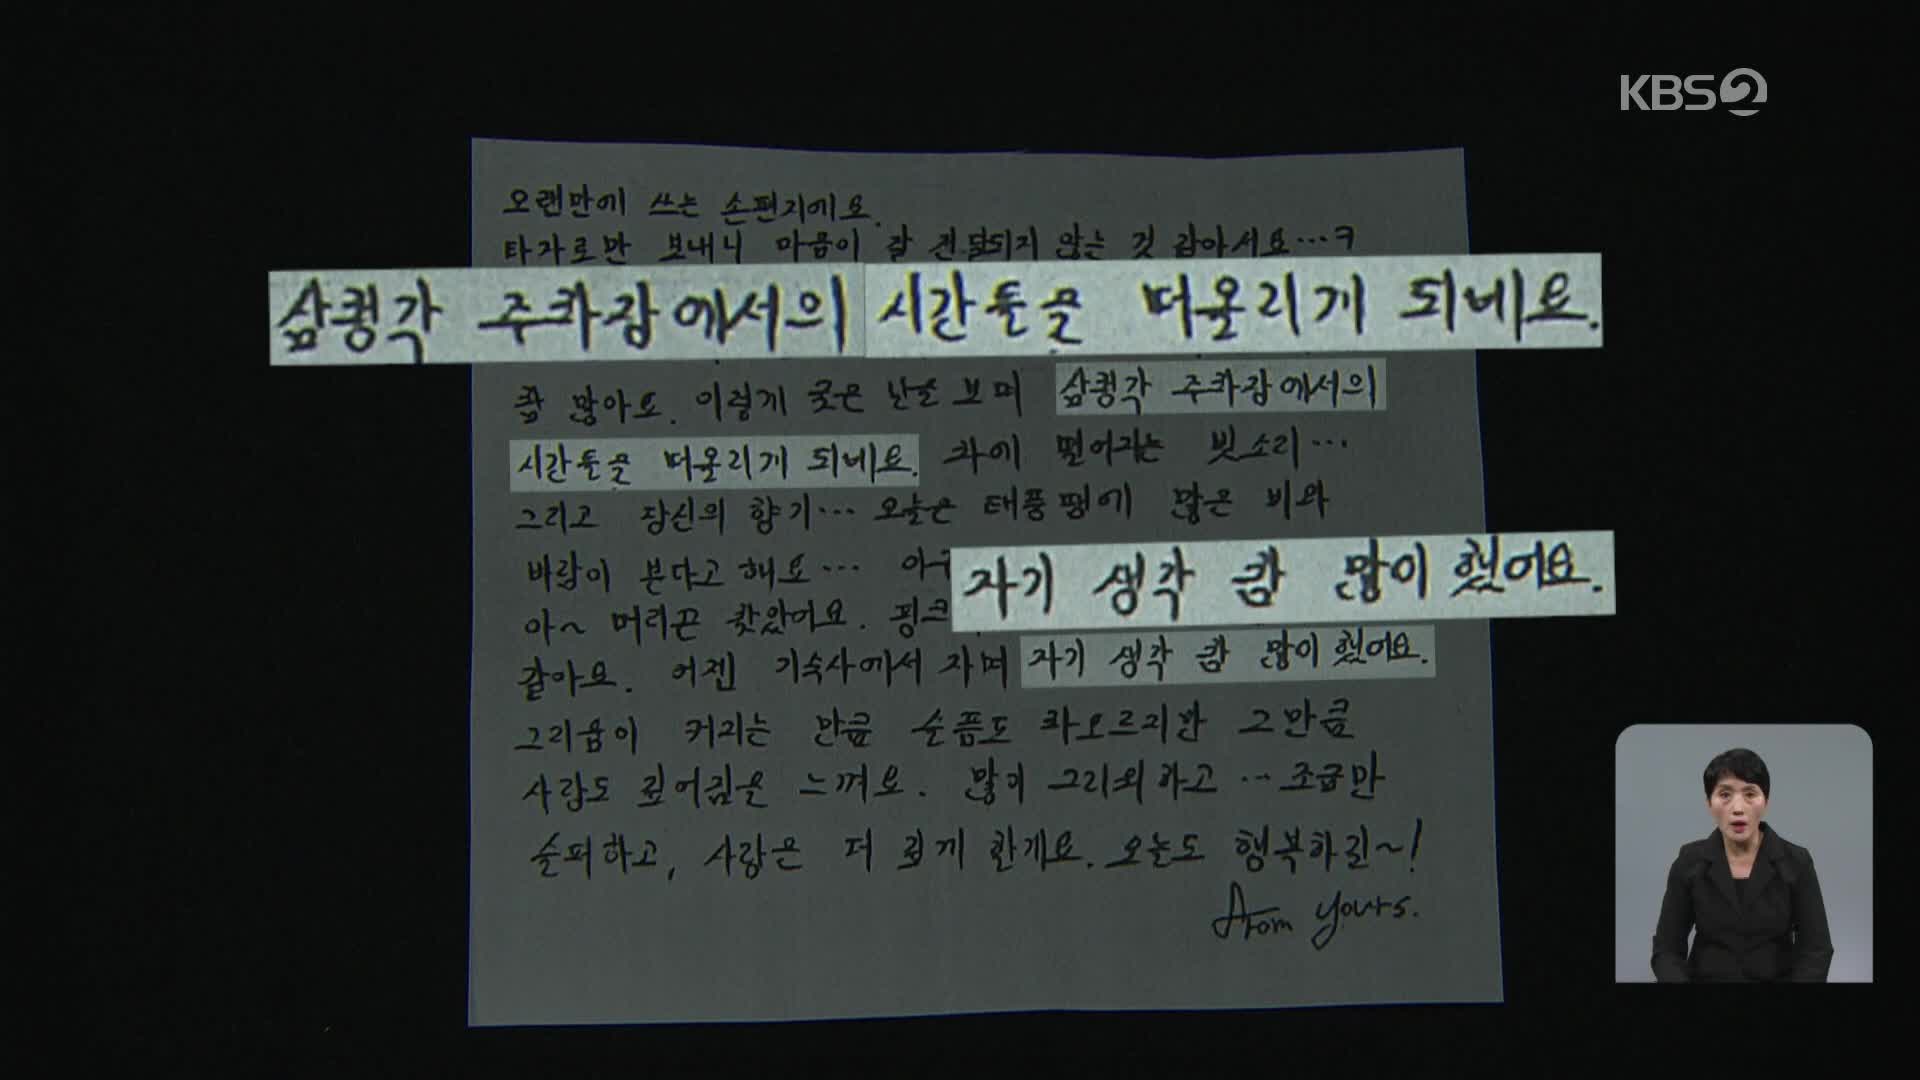 KBS
오랜만에 쓰는 손편지에요.
타자로만 보내니 마음이 잘 전달되지 않는 것 같아서요…ㅋ
삼청각 주차장에서의 시간들을 떠올리게 되네요.
참 많아요. 이렇게 궂은 날을 보며 삼청각 주차장에서의
시간들을 떠올리게 되네요. 차에 떨어지는 빗소리…
그리고 당신의 향기… 오늘은 태풍땜에 많은 비와
바람이 분다고 해요…
자기 생각 참 많이 했어요.
아~ 머리끈 찾았어요. 핑크
같아요. 어젠 기숙사에서 자며 자기 생각 참 많이 했어요.
그리움이 커지는 만큼 슬픔도 차오르지만 그만큼
사랑도 깊어짐을 느껴요. 많이 그리워하고…조금만
슬퍼하고, 사랑은 더 깊게 할게요. 오늘도 행복하길~!
From yours.